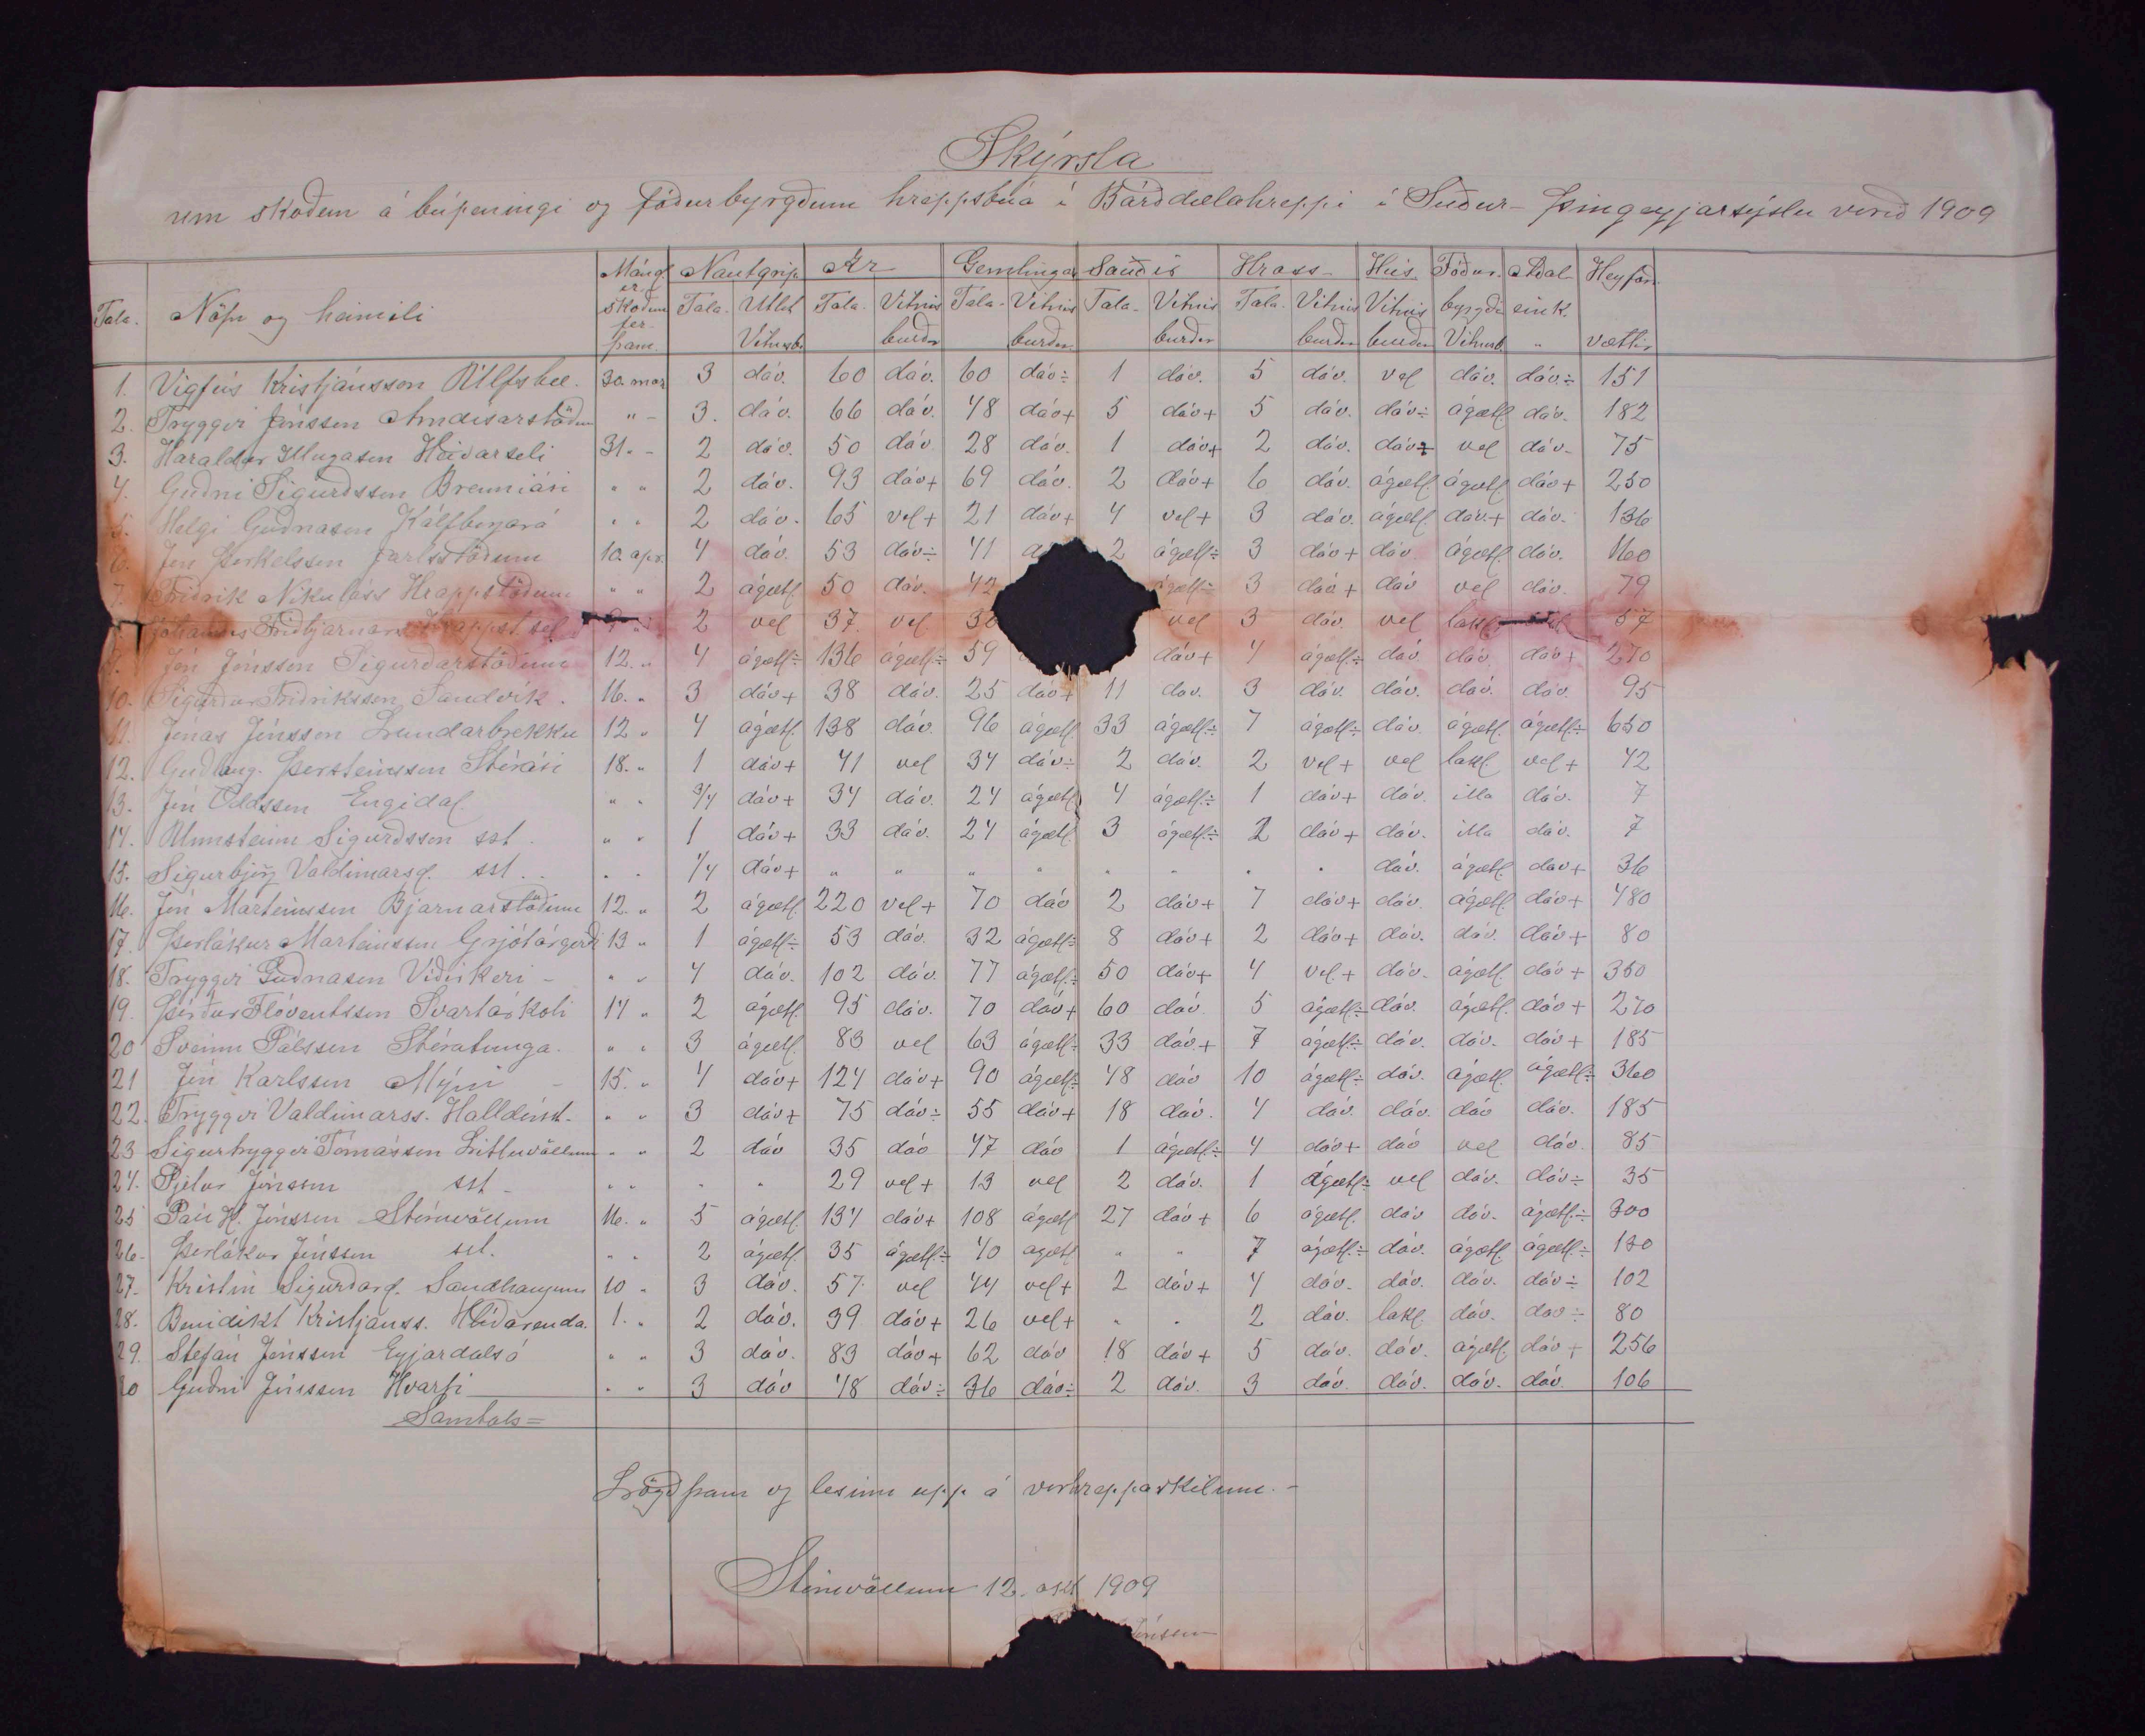 Skýrsla
um skoðun á búpeningi og fóðurbyrgðum hreppsbúa í Bárðdælahreppi í Suður-Þingeyjarsýslu vorið 1909
Tala. Nöfn og heimili skoðun fer fram. Nautgrip. Ær Gemlingar Sauðir Hross- Hús. Fóður. Aðal Heyforn.
Tala. Útlit Tala. Vitnis Tala. Vitnis Tala. Vitnis Tala. Vitnis Vitnis byrgði eink.
Vitnisb. burður burður burður burður burður Vitnisb. " vættir
1. Vigfús Kristjánsson Úlfsbæ. 30. mar 3 dáv. 60 dáv. 60 dáv÷ 1 dáv. 5 dáv. vel dáv. dáv÷ 151
2. Tryggvi Jónsson Arndísarstöðum " - 3. dáv. 66 dáv. 48 dáv+ 5 dáv+ 5 dáv. dáv÷ ágætl dáv. 182
3. Haraldur Illugason Heiðarseli 31. - 2 dáv. 50 dáv 28 dáv. 1 dáv+ 2 dáv. dáv÷ vel dáv. 75
4. Guðni Sigurðsson Brenniási " " 2 dáv. 93 dáv+ 69 dáv. 2 dáv+ 6 dáv. ágætl ágætl dáv+ 250
5. Helgi Guðnason Kálfborgará " " 2 dáv. 65 vel+ 21 dáv+ 4 vel+ 3 dáv. ágætl. dáv.+ dáv. 136
6. Jón Þorkelsson Jarlsstöðum 10. apr. 4 dáv. 53 dáv÷ 41 2 ágætl÷ 3 dáv+ dáv ágætl. dáv. 160
7. Friðrik Nikuláss Hrappstöðum " " 2 ágætl. 50 dáv. 42 ágætl÷ 3 dáv+ dáv vel dáv. 79
Jóhannes Friðbjarnars Hrappst.sel 2 vel 37. vel vel 3 dáv. vel lakl 57
9. Jón Jónsson Sigurðarstöðum 12. " 4 ágætl÷ 136 ágætl÷ 59 dáv+ 4 ágætl.÷ dáv dáv dáv+ 270
10. Sigurður Friðriksson Sandvík. 16. " 3 dáv+ 38 dáv. 25 dáv+ 11 dáv. 3 dáv. dáv. dáv. dáv. 95
11. Jónas Jónsson Lundarbrekku 12 " 4 ágætl. 138 dáv. 96 ágætl 33 ágætl÷ 7 ágætl÷ dáv. ágætl. ágætl÷ 650
12. Guðlaug. Þorsteinsson Stórási 18. " 1 dáv+ 41 vel 34 dáv÷ 2 dáv. 2 vel+ vel lakl. vel+ 42
13. Jón Oddsson Engidal. " " 3/4 dáv+ 34 dáv. 24 ágætl 4 ágætl÷ 1 dáv+ dáv. illa dáv. 7
14. Unnsteinn Sigurðsson sst. " " 1 dáv+ 33 dáv. 24 ágætl 3 ágætl÷ 2 dáv+ dáv. illa dáv. 7
15. Sigurbjörg Valdimarsd. sst. " " 1/4 dáv+ " " " " " " " " dáv. ágætl. dáv+ 36
16. Jón Marteinsson Bjarnarstöðum 12. " 2 ágætl. 220 vel+ 70 dáv 2 dáv+ 7 dáv+ dáv. ágætl dáv+ 480
17. Þorlákur Marteinsson Grjótárgerði 13 " 1 ágætl÷ 53 dáv. 32 ágætl÷ 8 dáv+ 2 dáv+ dáv. dáv. dáv+ 80
18. Tryggvi Guðnason Víðikeri - " " 4 dáv. 102 dáv. 77 ágætl÷ 50 dáv+ 4 vel+ dáv. ágætl. dáv+ 350
19. Þórður Flóventsson Svartárkoti 14 " 2 ágætl. 95 dáv. 70 dáv+ 60 dáv 5 ágætl÷ dáv. ágætl. dáv+ 270
20 Sveinn Pálsson Stóratunga. " " 3 ágætl. 83 vel 63 ágætl÷ 33 dáv.+ 7 ágætl÷ dáv. dáv. dáv+ 185
21 Jón Karlsson Mýri - 15. " 4 dáv+ 124 dáv+ 90 ágætl÷ 48 dáv 10 ágætl÷ dáv. ágætl. ágætl÷ 360
22. Tryggvi Valdimarss. Halldórst. " " 3 dáv+ 75 dáv÷ 55 dáv+ 18 dáv. 4 dáv. dáv. dáv dáv. 185
23 Sigurtryggvi Tómásson Litluvöllum " " 2 dáv 35 dáv 47 dáv 1 ágætl÷ 4 dáv+ dáv vel dáv. 85
24. Pjetur Jónsson sst - " " " " 29 vel+ 13 vel 2 dáv. 1 ágætl÷ vel dáv. dáv÷ 35
25 Páll H. Jónsson Stóruvöllum 16. " 5 ágætl. 134 dáv+ 108 ágætl 27 dáv+ 6 ágætl. dáv dáv. ágætl.÷ 300
26. Þorlákur Jónsson sst. " " 2 ágætl. 35 ágætl÷ 40 ágætl " " 7 ágætl÷ dáv. ágætl. ágætl÷ 130
27. Kristín Sigurðard. Sandhaugum 10 " 3 dáv. 57. vel 44 vel+ 2 dáv+ 4 dáv. dáv. dáv. dáv÷ 102
28. Benidikt Kristjánss. Hlíðarenda. 1. " 2 dáv. 39 dáv+ 26 vel+ " " 2 dáv. lakl. dáv. dáv÷ 80
29. Stefán Jónsson Eyjardalsá " " 3 dáv. 83 dáv+ 62 dáv 18 dáv+ 5 dáv. dáv. ágætl. dáv+ 256
30 Guðni Jónsson Hvarfi " " 3 dáv 48 dáv÷ 36 dáv÷ 2 dáv. 3 dáv. dáv. dáv. dáv. 106
Samtals=
Lögð fram og lesinn upp á vorhreppaskilum. -
Stóruvöllum 12. okt 1909